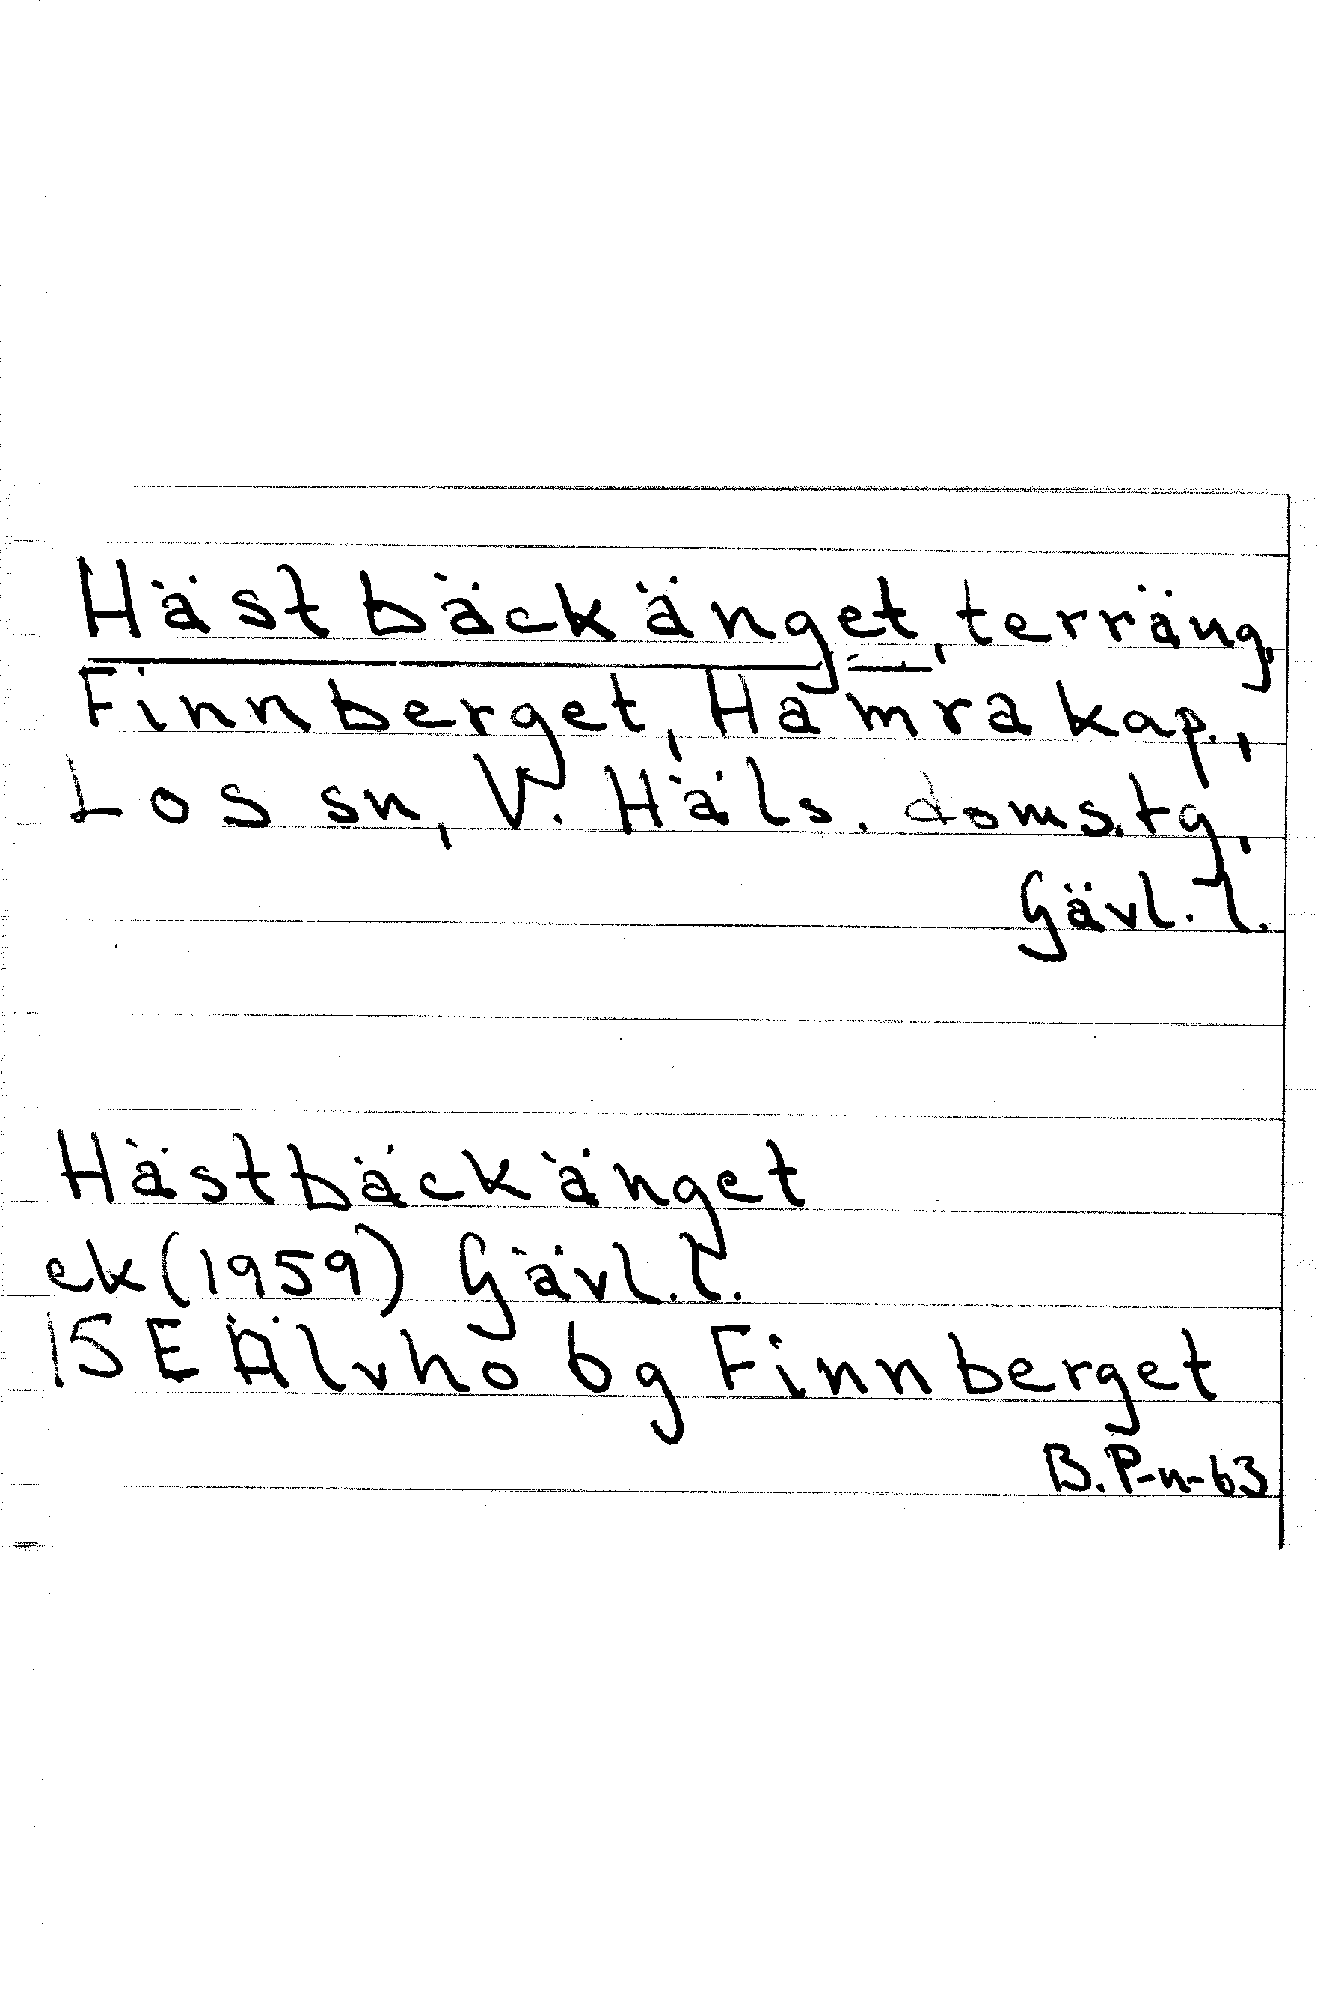 Hästbäckänget, terräng,
Finnberget, Hamra kap.,
Los sn, V. Häls. doms.tg,
Gävl. l.
Hästbäckänget
ek (1959) Gävl. l.
15E Älvho bg Finnberget
B. P-n-63